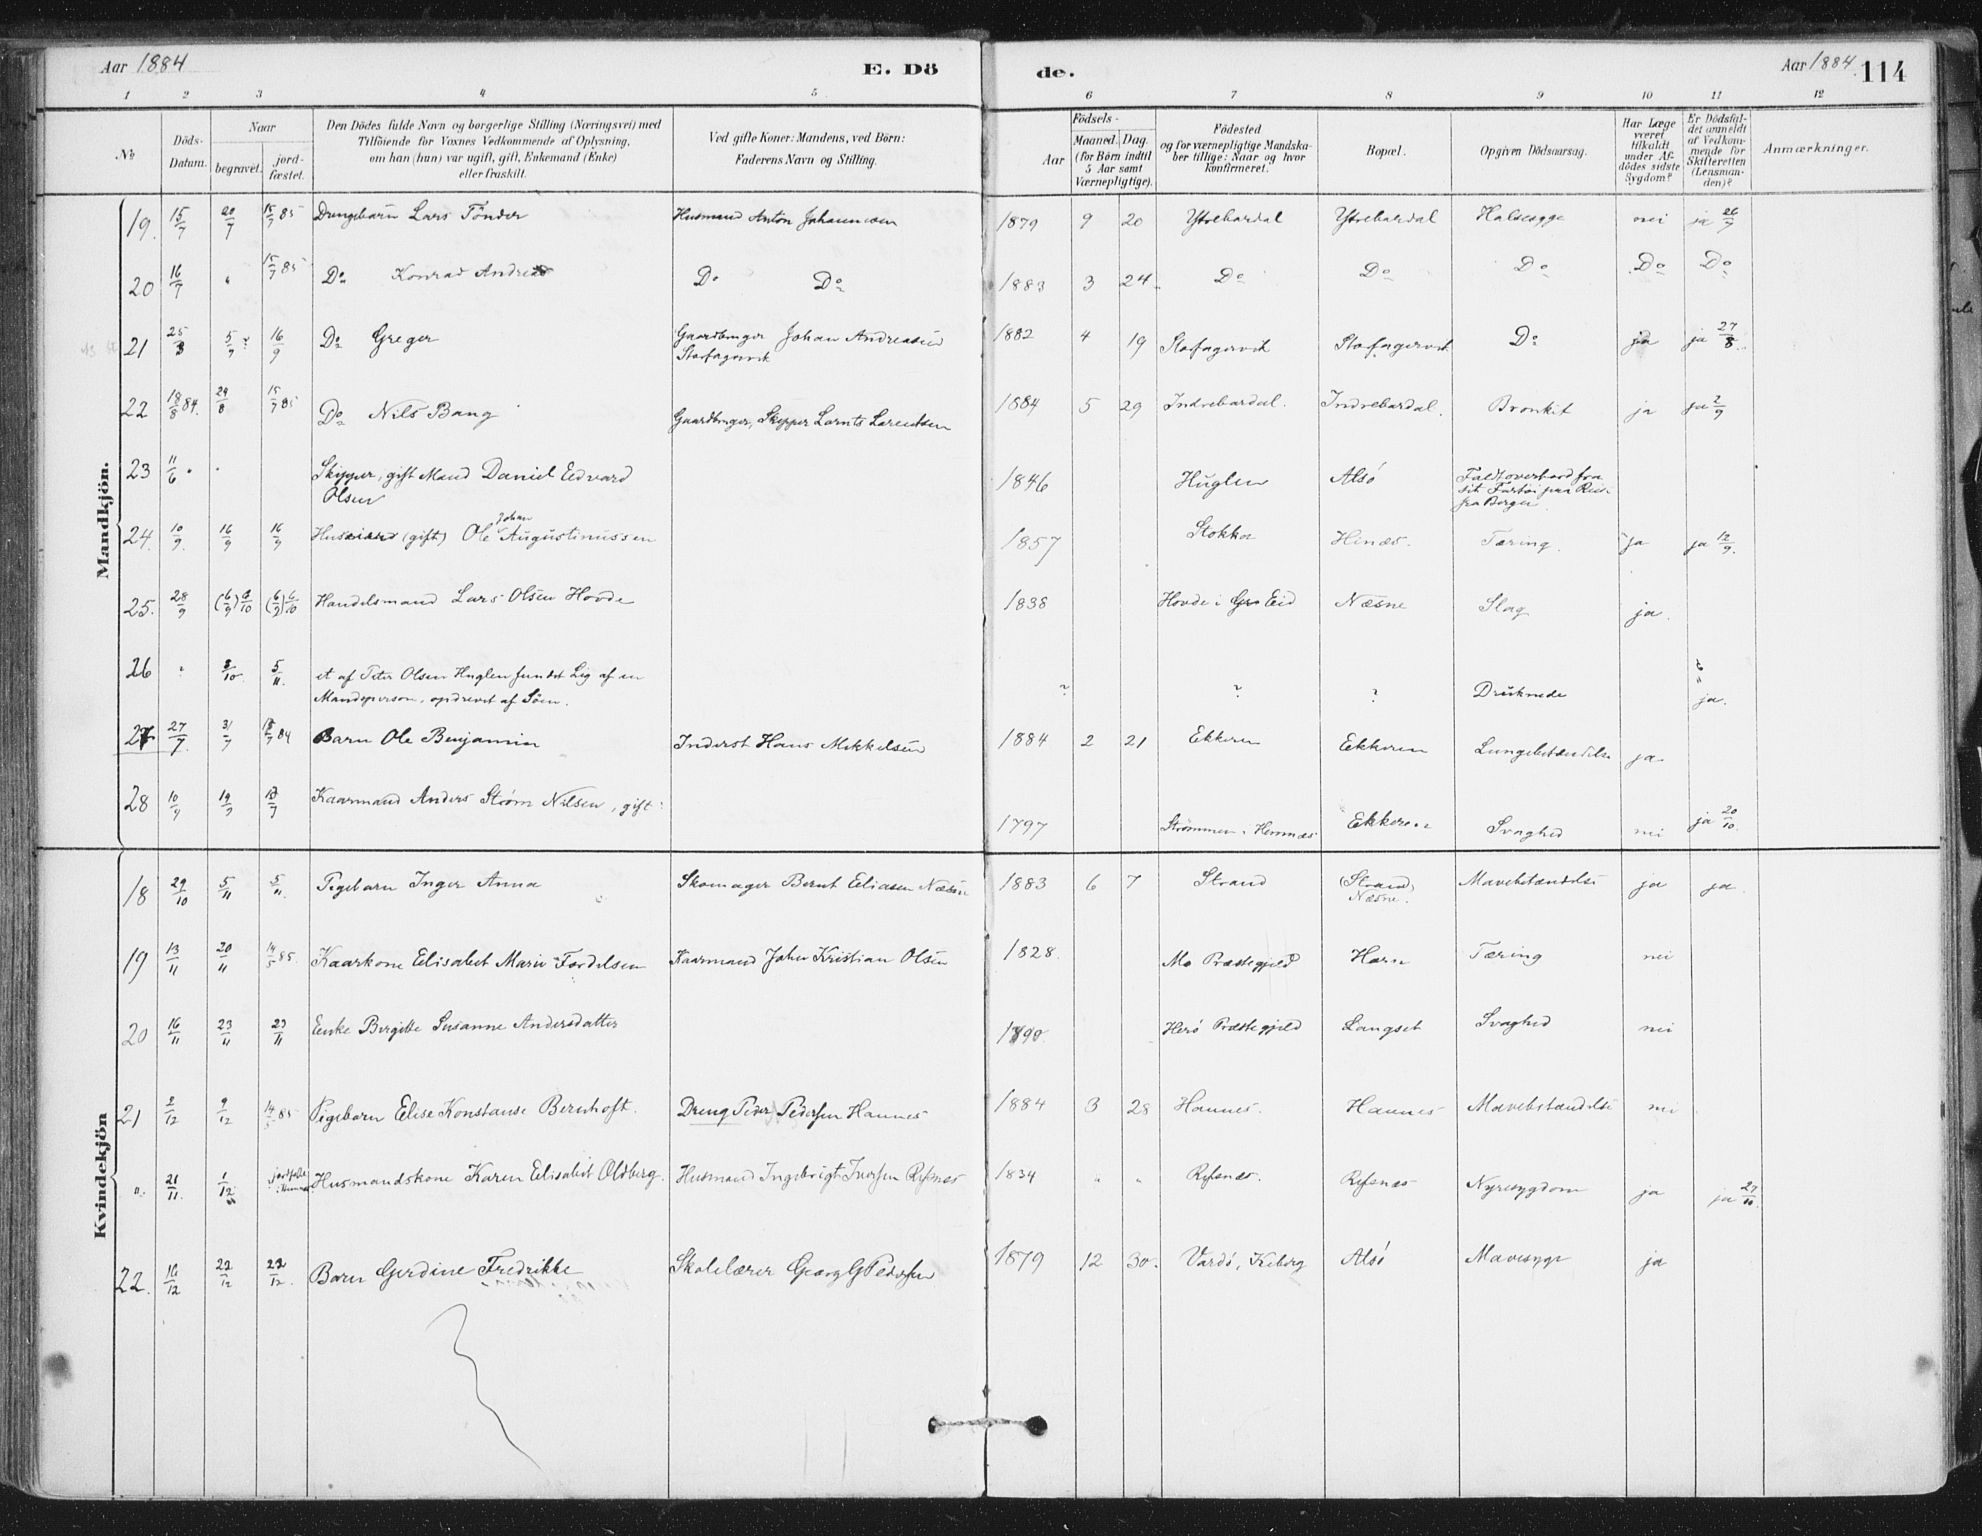 Aar 1884
E. Dö
de.
Aar 1884.
114
1 2 3 4 5 6 7 8 9 10 11 12
No
Döds-Datum.
Naar
begravet.
jord-fæstet.
Den Dödes fulde Navn og borgerlige Stilling (Næringsvei) med
Tilföiende for Voxnes Vedkommende af Oplysning,
om han (hun) var ugift, gift, Enkemand (Enke)
eller fraskilt.
Ved gifte Koner: Mandens, ved Börn:
Faderens Navn og Stilling.
Födsels-
Aar
Maaned. Dag.
(for Börn indtil
5 Aar samt
Værnepligtige).
Födested
og for værnepligtige Mandska-
ber tillige: Naar og hvor
konfirmeret.
Bopæl.
Opgiven Dödsaarsag.
Har Læge
været
tilkaldt
under Af-
dödes sidste
Sygdom?
Er Dödsfal-
det anmeldt
af Vedkom-
mende for
Skifteretten
(Lensman-
den)?
Anmærkninger.
Mandkjön.
19. 15/7 20/7 15/7 85 Drengebarn Lars Tönder Husmand Anton Johannesen 1879 9 20 Ytrebardal Ytrebardal Halssyge nei ja 26/7
20 16/7 " 15/7 85 Do Konrad Andreas Do Do 1883 3 24 Do Do Do Do Do
21 25/8 5/9 16/9 Do Greger Gaardbruger Johan Andreassen 1882 4 19 Do ja ja 27/8
22 18/8 84. 24/8 15/7 85 Do Nils Bang Gaardbruger, Skipper Lornts Lorentsen 1884 5 29 Indrebardal. Indrebardal. Bronkit ja ja 2/9
23 11/6 Skipper, gift Mand Daniel Edvard 1846 Huglen Alsö Faldt overbord fra
Olsen
24. 10/9. 16/9 16/9 Husmand (gift) Ole Johan Augustinussen 1857 Stokka Hinæs. Tæring. Ja ja 12/9.
25. 28/9 (6/9) 6/10 (6/9) 6/10 Handelsmand Lars Olsen Hovde 1838 Hovde i Næsne Slag ja.
26 " 3/10. 5/11. et af Peter Olsen Huglen fundet Lig af en
Mandsperson, opdrevet af Söen. ? ? ? Druknede ja.
27 27/7. 31/7 84 Barn Ole Benjamin Inderst Hans Mikkelsen 1884 2 21 Ekkeren Ekkeren Lungebetændelse ja
28 10/9 19/9 Kaarmand Anders Strøm Nilsen, gift 1797 Strømmen i Hemnæs Svaghed nei ja 20/10.
Kvindekjön
18 29/10 5/11 5/11. Pigebarn Inger Anna Skomager Bernt Eliasen Næsne 1883 6 7 Strand (Strand) Næsne. Mavebetændelse ja ja.
19 13/11 20/11 14/5 85. Kaarkone Elisabet Marie Kaarmand Johan Kristian Olsen 1828. Mo Præstegjeld Tæring nei
20 16/11 23/11 23/11 Enke Birgitte Susanne Andersdatter Herö Præstegjeld Langset Svaghed nei
21 2/12 9/12 14/5 85 Pigebarn Elise Konstanse Bernhoft. Dreng Peder Pedersen Hannes 1884 3 28 Hannes. Hannes Mavebetændelse nei
". 21/11. 1/12 Husmandskone Karen Elisabet Oldberg. Husmand Ingebrigt Iversen Refsnes 1834 " " Refsnes. Refsnæs Nyresygdom ja ja 27/10.
22. 16/12 22/12 22/12. Barn Gerdine Fredrikke Skolelærer Georg G Pedersen 1879 12 30. Vardö, Kiberg Alsö Mavesyge ja